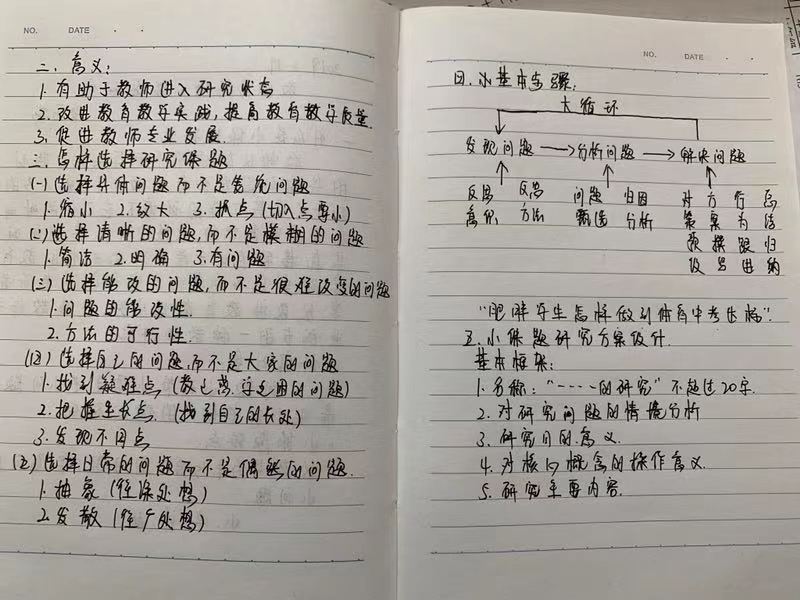 NO. DATE
二、意义:
1. 有助于教师进入研究状态
2. 改进教育教学实践,提高教育教学质量.
3. 促进教师专业发展.
三、怎样选择研究课题
(一)选择具体问题而不是笼统问题
1. 缩小 2. 放大 3. 抓点(切入点要小)
(二)选择清晰的问题,而不是模糊的问题
1. 简洁 2. 明确 3. 有问题
(三)选择能改的问题,而不是很难改变的问题
1. 问题的能改性.
2. 方法的可行性.
(四)选择自己的问题,而不是大家的问题
1. 找到疑难点(教已惑、学之困的问题)
2. 把握生长点.(找到自己的长处)
3. 发现不同点
(五)选择日常的问题而不是偶然的问题.
1. 抽象(往深处想)
2. 发散(往广处想)
NO. DATE
四、小基本步骤:
大循环
发现问题 → 分析问题 → 解决问题
反思 反思 问题 归因 对 方 行 总
意识 方法 甄选 分析 策 案 为 结
预 撰 跟 归
设 写 进 纳
“肥胖学生怎样做到体育中考达标”.
五、小课题研究方案设计.
基本框架:
1. 名称:“----的研究”不超过20字.
2. 对研究问题的情境分析
3. 研究目的、意义.
4. 对核心概念的操作意义.
5. 研究主要内容.